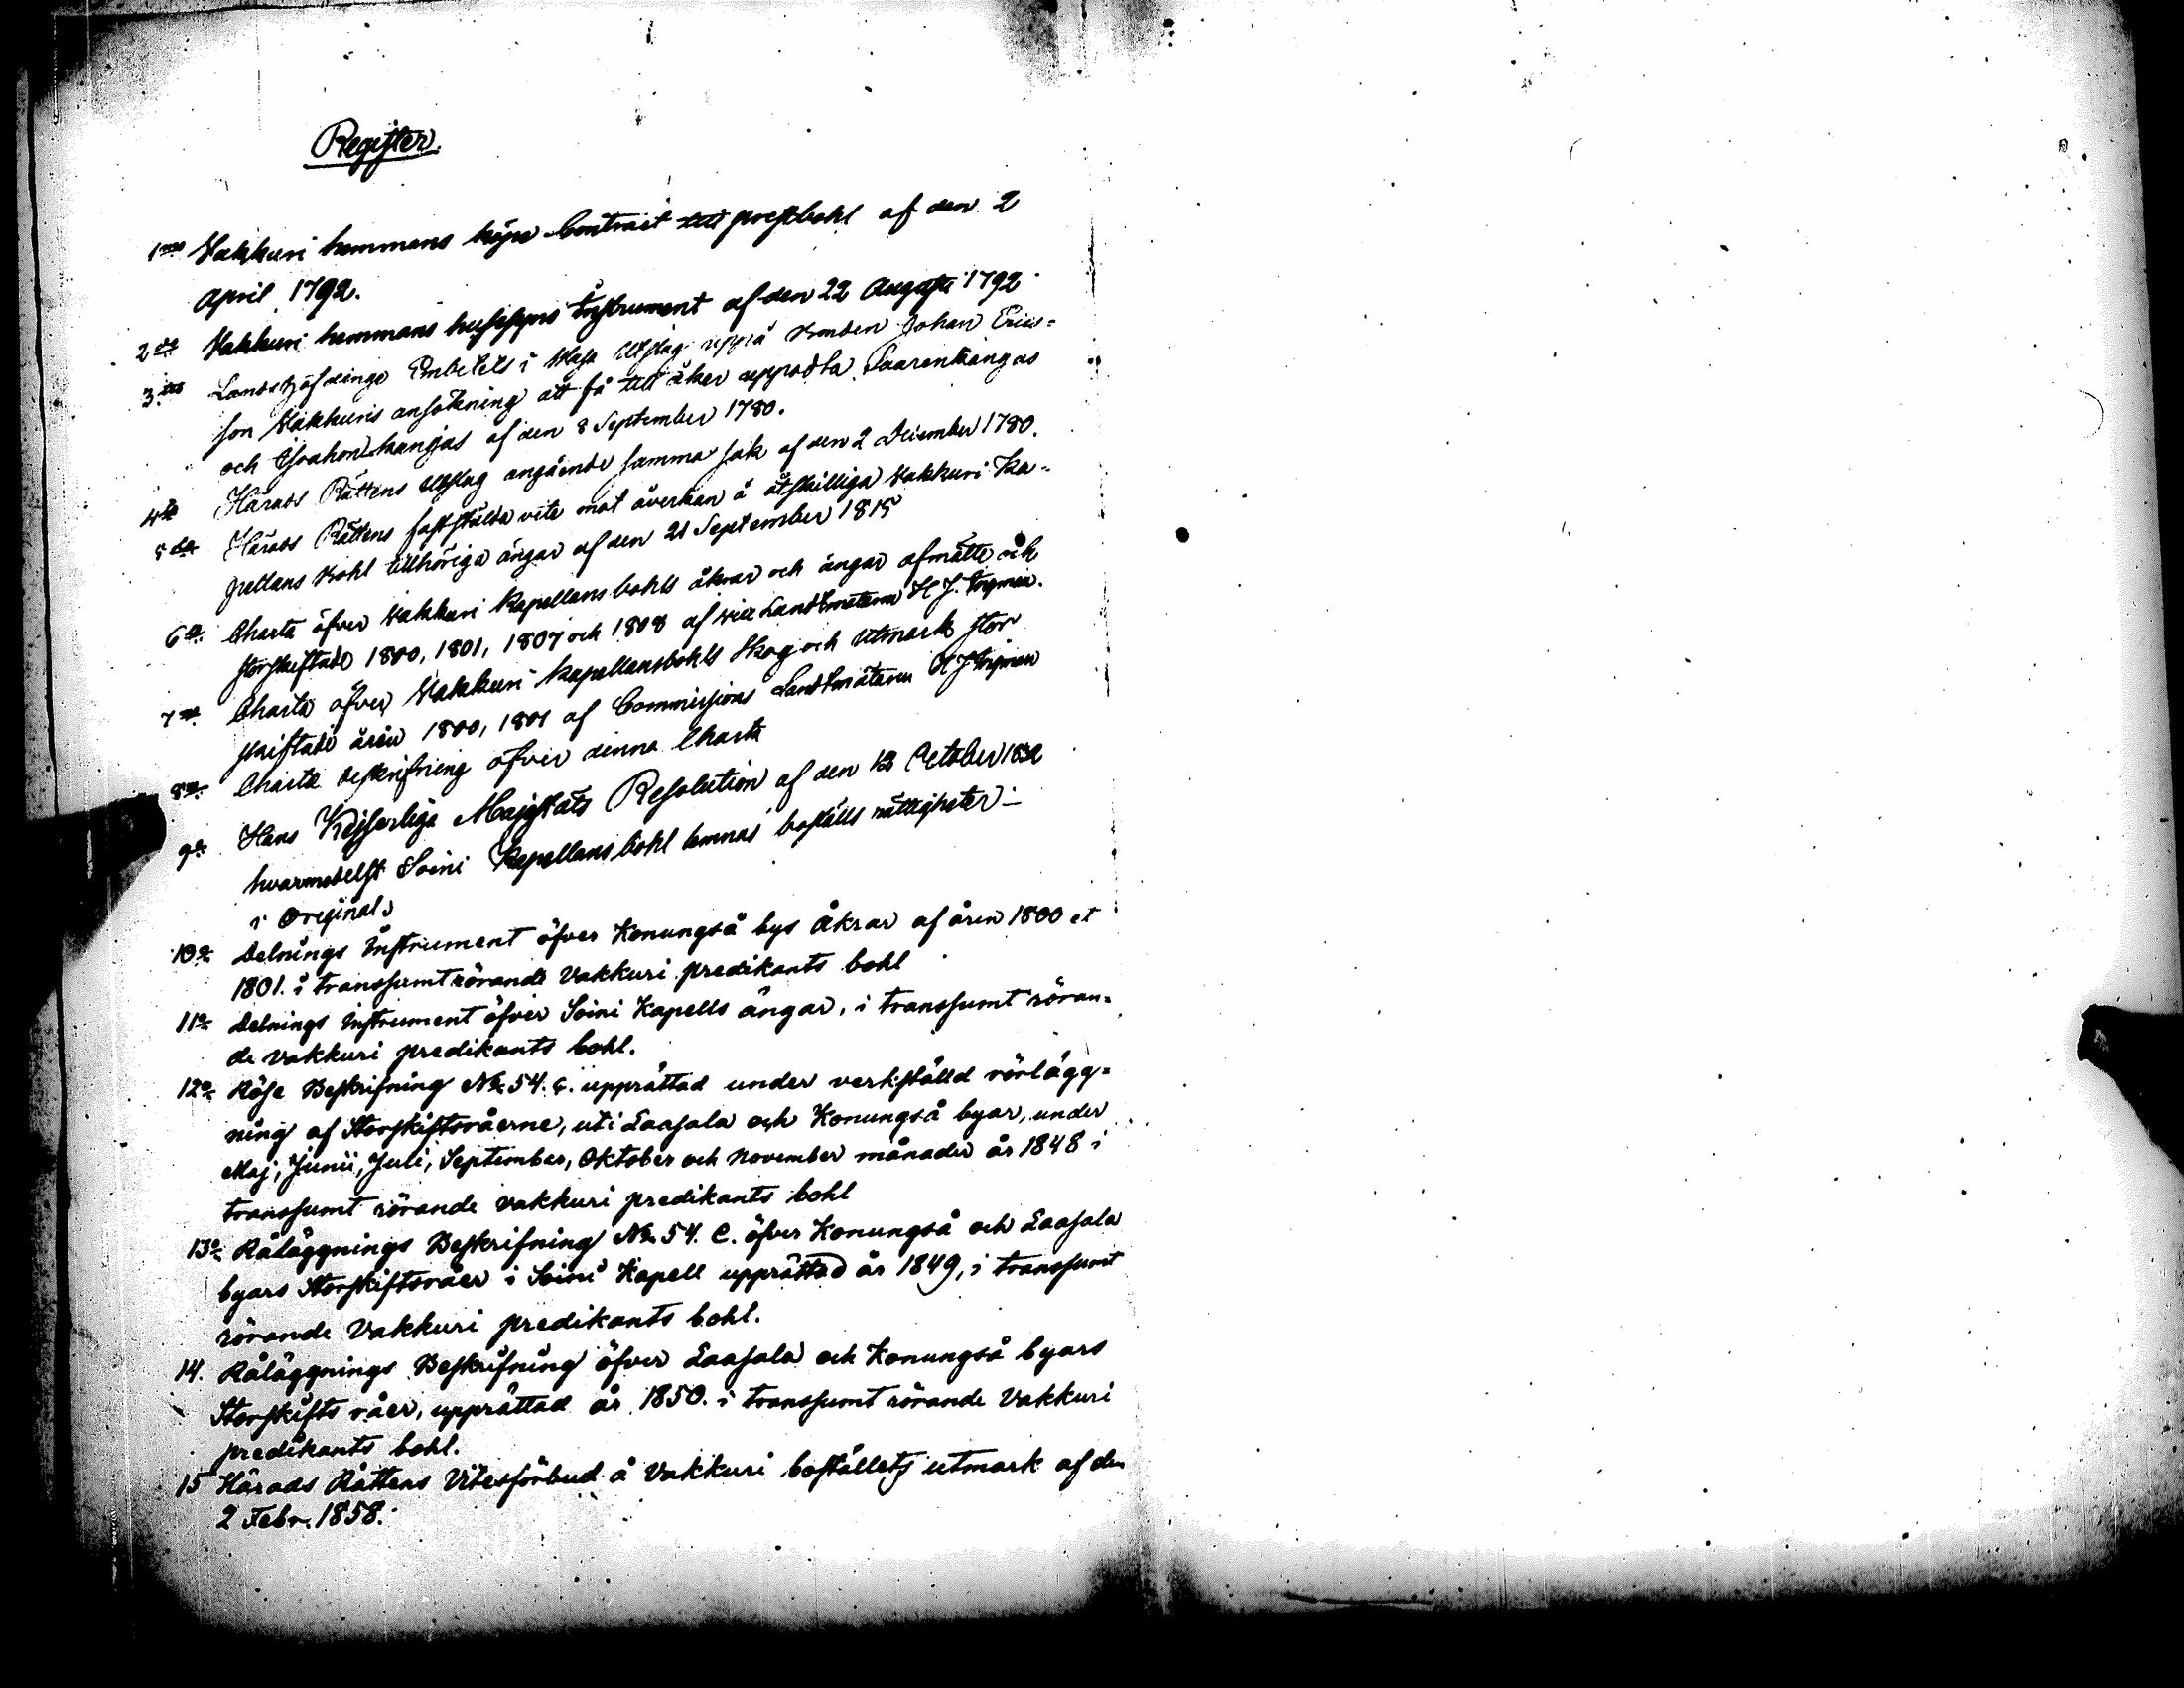 Register.
1mo Vakkuri hemmans köpe Contract till prestbohl af den 2
April 1792.
2do Vakkuri hemmans husesyns Instrument af den 22 Augusti 1792
3tio Landshöfdinge Embetets i Wasa Utslag uppå bonden Johan Erics=
son Vakkuris ansökning att få till åker upprodta Saarenkangas
och kangas af den 8 September 1780.
4to Härads Rättens Utslag angående samma sak af den 2 December 1780.
5to Härads Rättens fastställda vite mot åverkan å åtskilliga Vakkuri Ka=
pellans Bohl tillhöriga ängar af den 21 September 1815
6to Charta öfver Vakkuri Kapellans bohls åkrar och ängar afmätte och
storskiftade 1800, 1801, 1807 och 1808 af vice Landtmätaren H J. Ingman.
7mo Charta öfver Vakkuri Kapellansbohls Skog och Utmark stor
skiftade åren 1800, 1801 af Commissions Landtmätaren H J Ingman
8vo Charte beskrifning öfver denna Charta
9o Hans Kejserliga Majestäts Resolution af den 12 October 1832
hvarmedelst Soini Kapellans bohl lemnas boställs rättigheter –
i Original
10o Delnings Instrument öfver Konungså bys Åkrar af åren 1800 et
1801. i transsumt rörande Vakkuri predikants bohl
11o Delnings Instrument öfver Soini Kapells ängar, i transsumt röran=
de Vakkuri predikants bohl.
12o Röse Beskrifning No 54. c. upprättad under verkställd rörlägg=
ning af Storskiftsråerne, uti Laasala och Konungså byar, under
Maj, Junii, Juli, September, Oktober och November månader år 1848 i
transsumt rörande vakkuri predikants bohl
13o Råläggnings Beskrifning No 54. C. öfver Konungså och Laasala
byars Storskiftsråer i Soini Kapell upprättad år 1849, i transsumt
rörande Vakkuri predikants bohl.
14. Råläggnings Beskrifning öfver Laasala och Konungså byars
Storskifts råer, upprättad år 1850. i transsumt rörande Vakkuri
predikants bohl.
15 Härads Rättens Vitesförbud å Vakkuri boställets utmark af den
2 Febr. 1858.